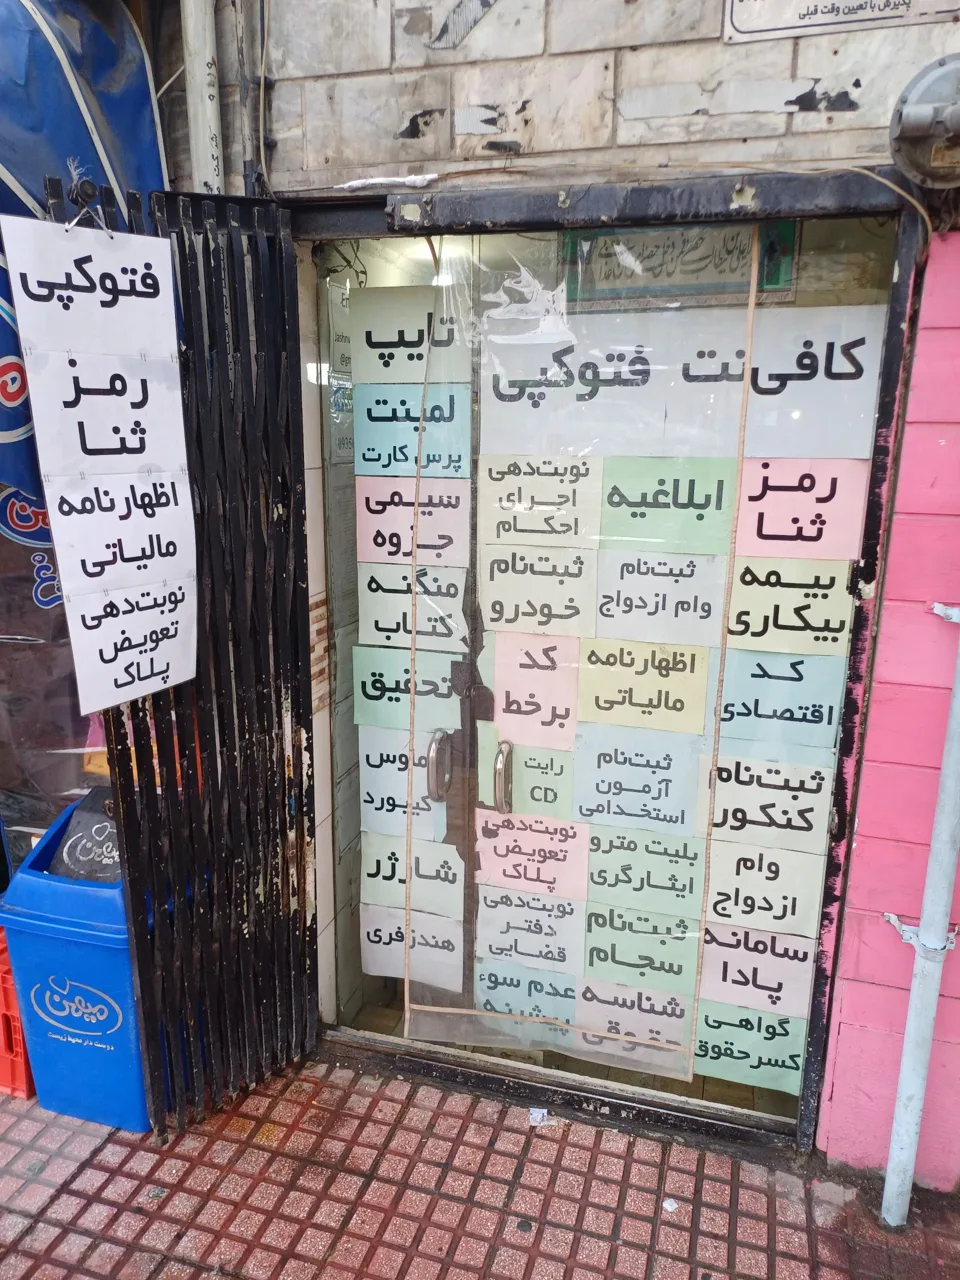 پذیرش با تعیین وقت قبلی
فتوکپی
رمز
ثنا
اظهارنامه
مالیاتی
نوبت‌دهی
تعویض
پلاک
کافی‌نت فتوکپی
رمز
ثنا
ابلاغیه
نوبت‌دهی
اجرای
احکام
بیمه
بیکاری
ثبت‌نام
وام ازدواج
ثبت‌نام
خودرو
کد
اقتصادی
اظهارنامه
مالیاتی
کد
برخط
ثبت‌نام
کنکور
ثبت‌نام
آزمون
استخدامی
رایت
CD
وام
ازدواج
بلیت مترو
ایثارگری
نوبت‌دهی
تعویض
پلاک
سامانه
پادا
ثبت‌نام
سجام
نوبت‌دهی
دفتر
قضایی
گواهی
کسرحقوق
شناسه
حقوقی
عدم سوء
پیشینه
تایپ
لمینت
پرس کارت
سیمی
جزوه
منگنه
کتاب
تحقیق
ماوس
کیبورد
شارژر
هندزفری
میهن
دوست دار محیط زیست